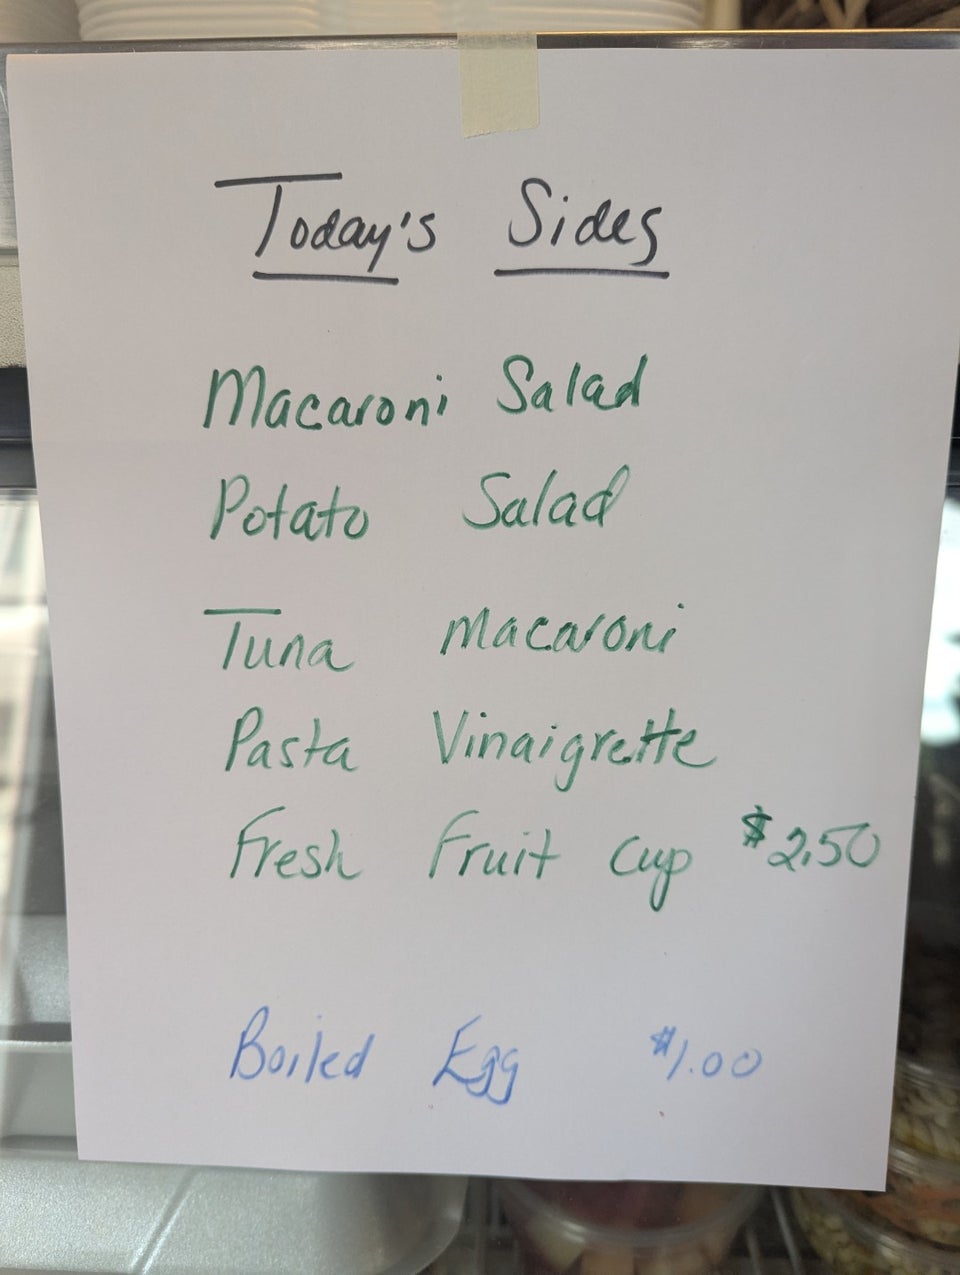 Today's Sides
Macaroni Salad
Potato Salad
Tuna Macaroni
Pasta Vinaigrette
Fresh Fruit Cup $2.50
Boiled Egg $1.00